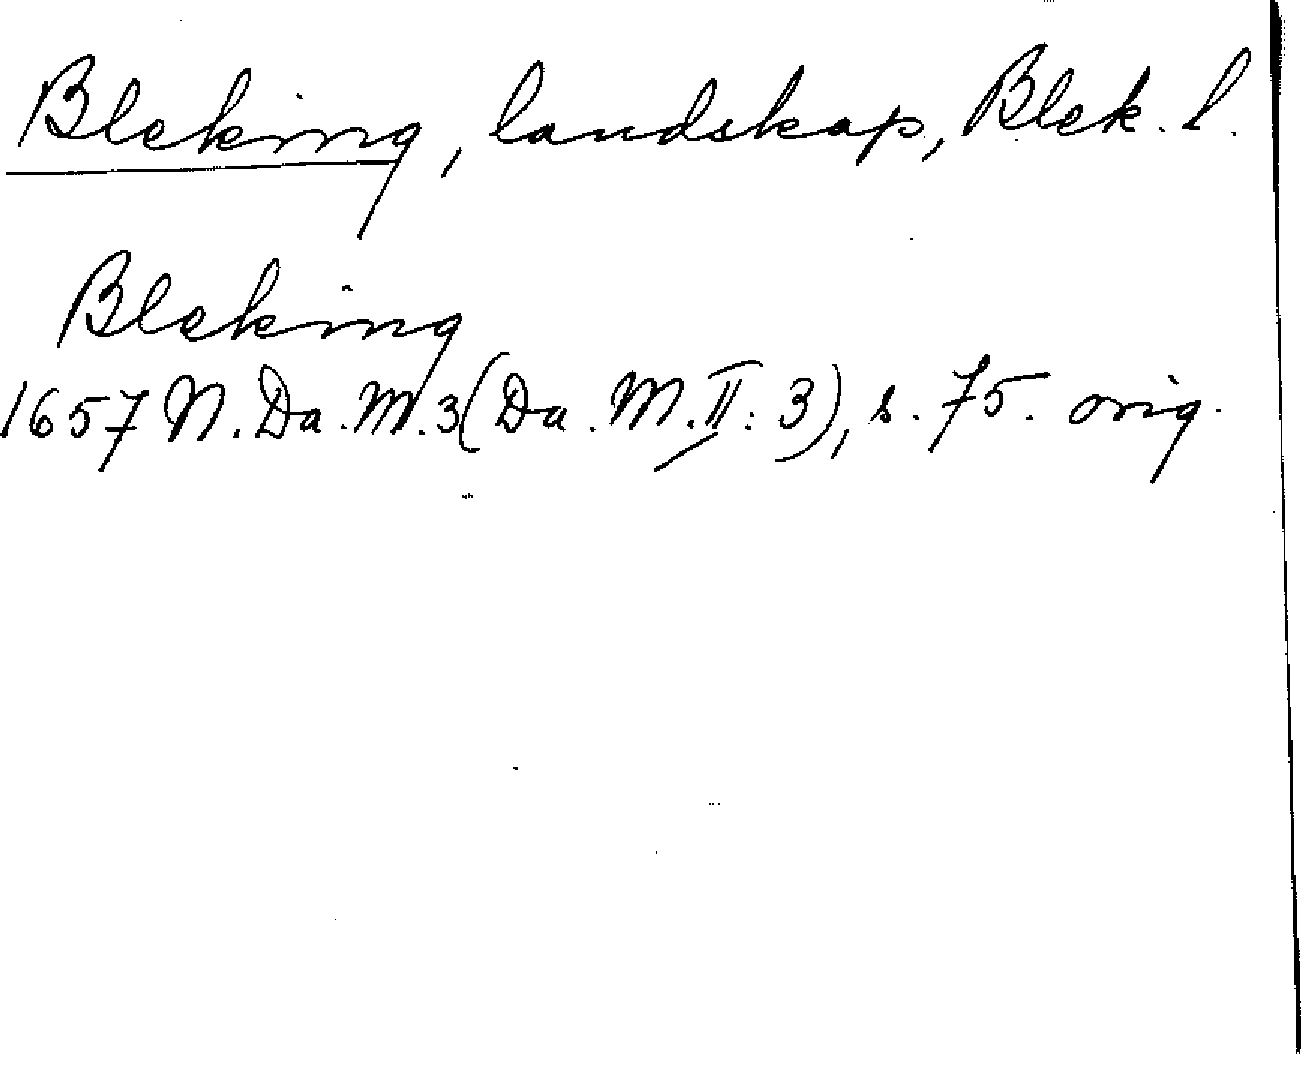 Bleking, landskap, Blek. l.
Bleking
1657 N. Da. M. 3 (Da. M. II: 3), s. 75. orig.